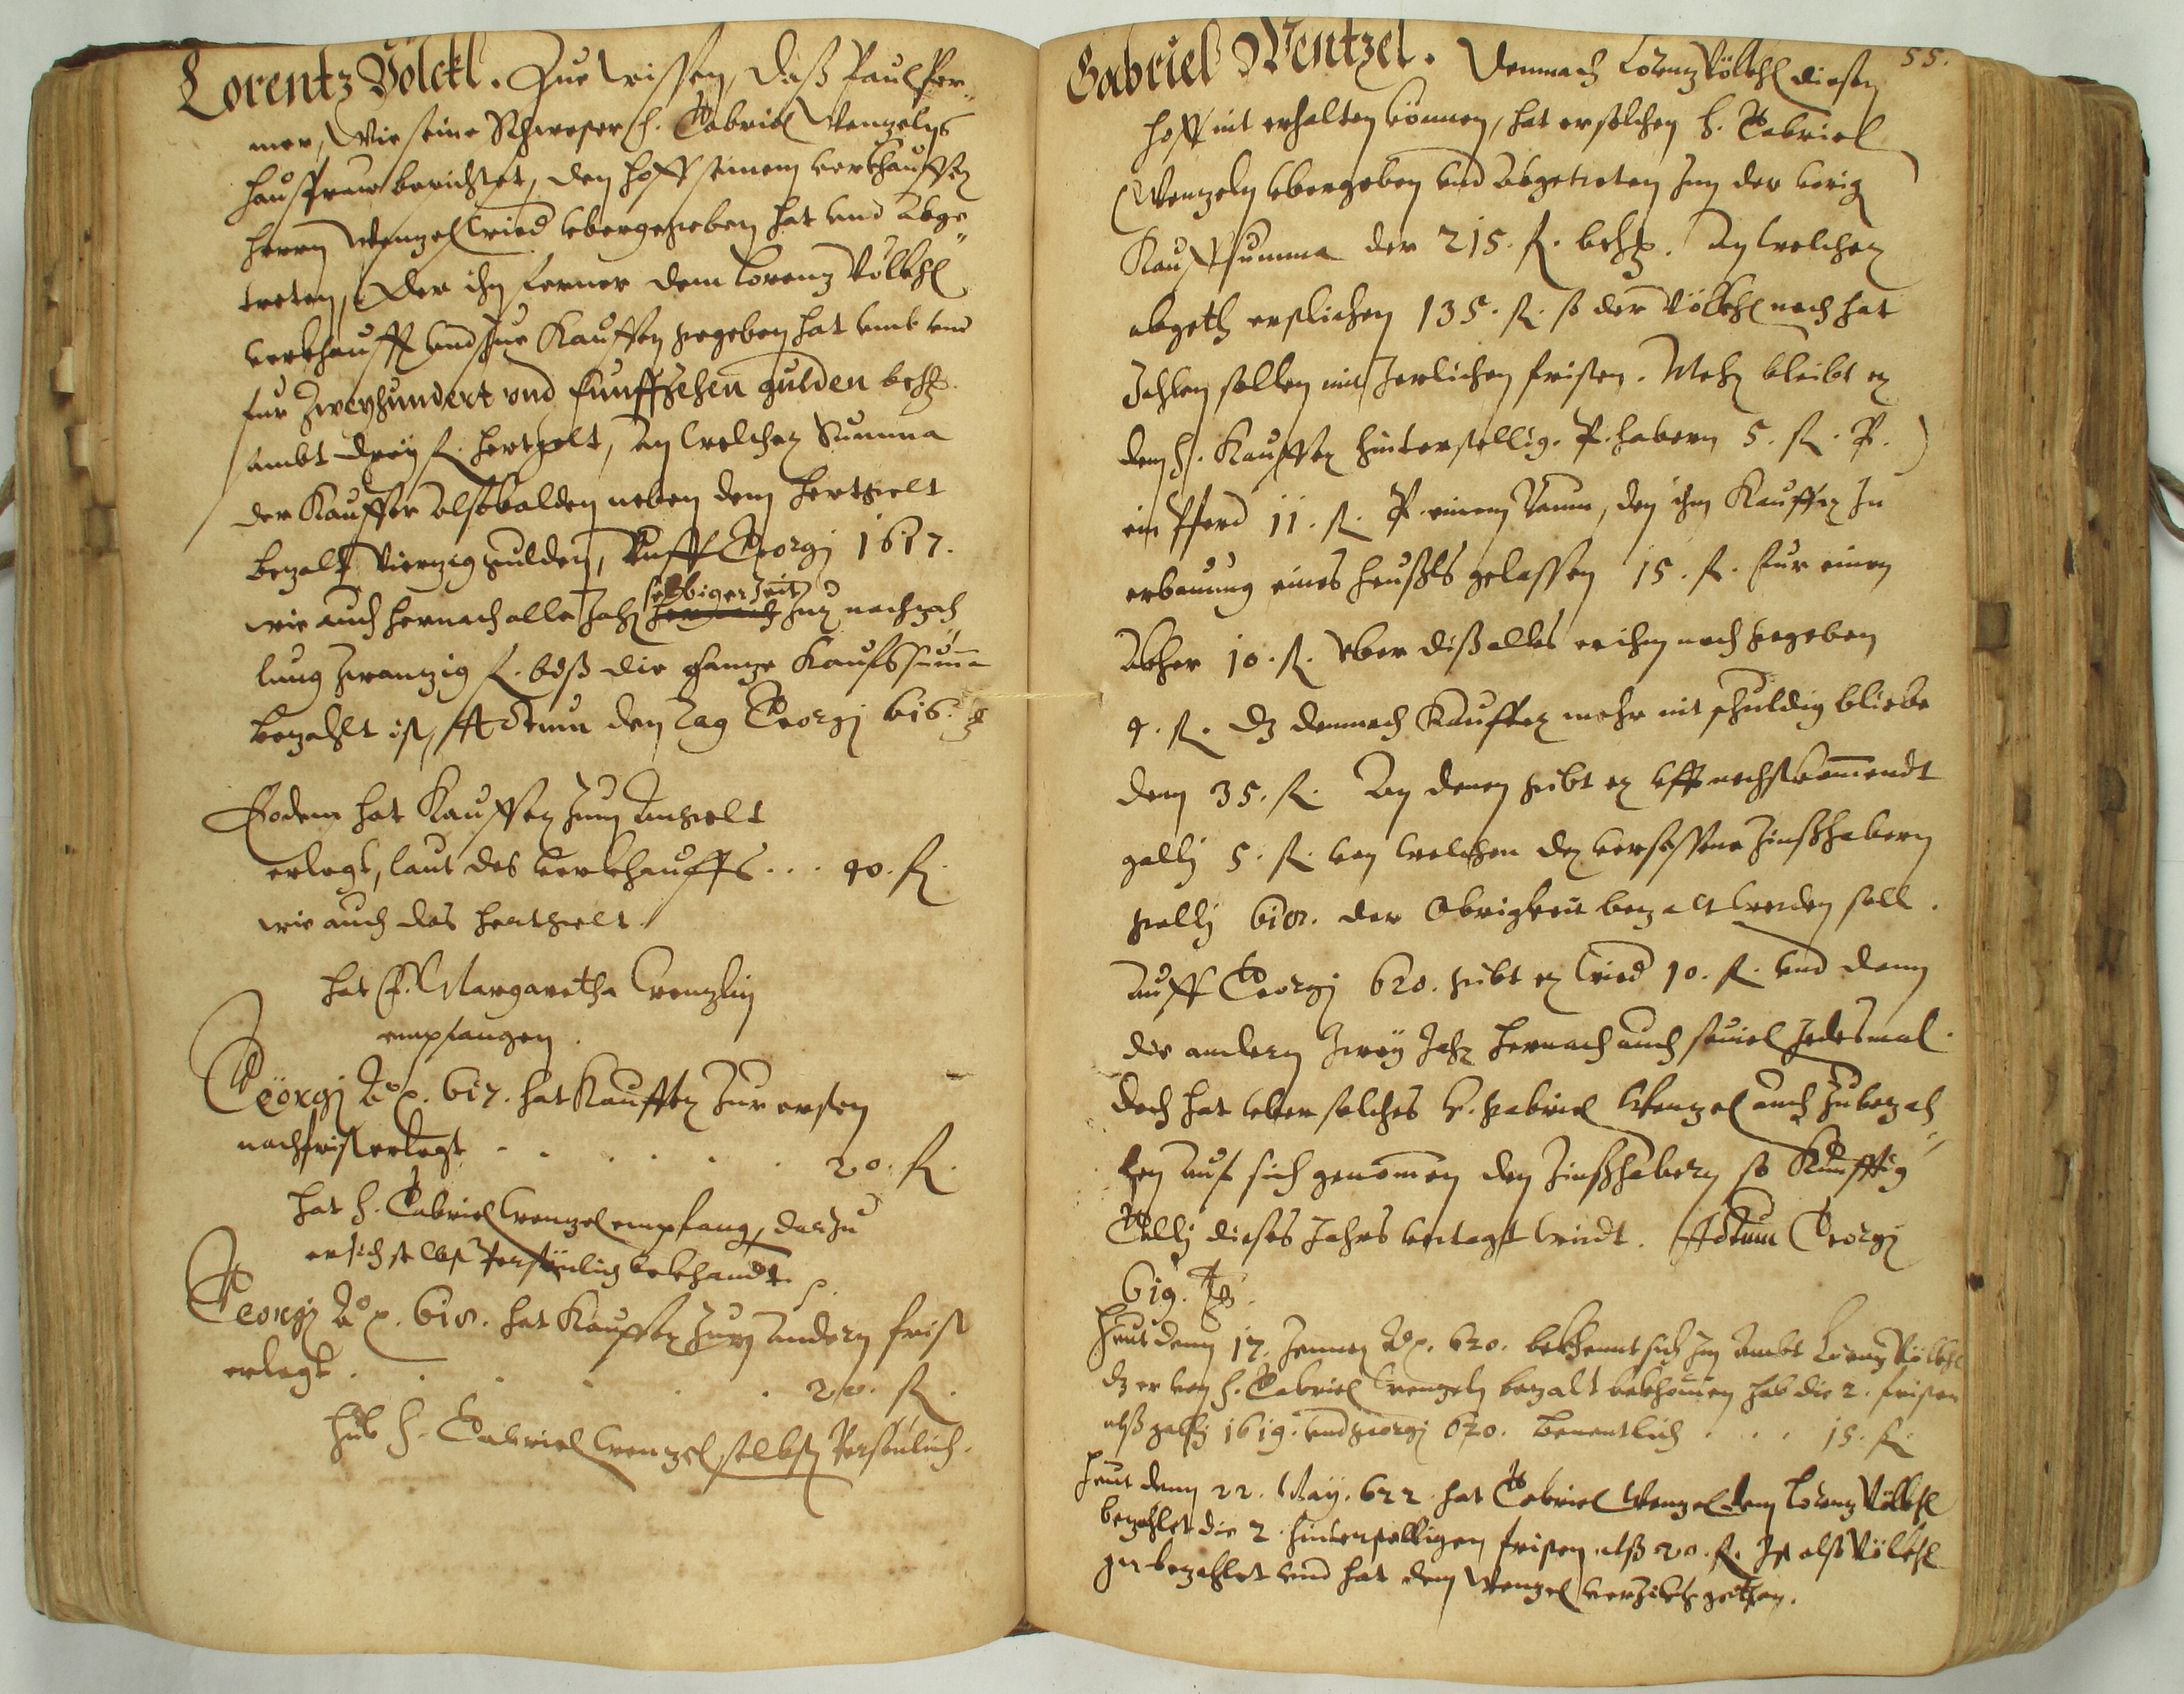 Lorentz Völckl. Zue wissen, daß Paul Per-
mer, wie seine Schweser H. Gabriel Wenzelns
haußfraw berichtet, den hoff seinem verkhauffer
herrn Wenzel wied ubergegeben hat und abge-
treten, Der ihn ferner dem Lorenz Völkhl
verkhaufft und zue Kauffen gegeben hat umb und
fur Zweyhundert vnd funffzehen gulden beh.
sambt drey fl. hertgelt, An welcher Summa
der Kauffer alsobalden neben dem hertgelt
bezalt Vierzig gulden, Auff Georgj 1617.
wie auch hernach alle Jahr selbiger Zeit zur nachzah
lung zwanzig fl. biß die ganze Kaufssuma
bezahlt ist, Actum den Tag Georgj 616.
Eodem hat Kauffer zum angelt
erlegt, laut des verkhauffs . . . 40. fl.
wie auch das hertgelt.
hat F. Margaretha Wenzlin
empfangen.
Georgj Ao. 617. hat Kauffer zur ersten
nachfrist erlegt . . . . . . 20. fl.
hat H. Gabriel Wenzel empfang, darzu
er sich selbst Persönlich bekhandt.
Georgj Ao. 618. hat Kauffer zur andern frist
erlegt . . . . . . 20. fl.
hub H. Gabriel Wenzel selbst Persönlich.
55.
Gabriel Wentzel. Demnach Lorenz Völkhl diesen
hoff nit erhalten können, hat er solchen H. Gabriel
Wenzeln ubergeben und abgetreten Inn der vorig
Kauffsumma der 215. fl. beh. An welcher
abgeth erstlichen 135. fl. so der Völkhl noch hat
Zahlen sollen mit Jerlichen fristen. Mehr bleibt er
dem H. Kauffer hinterstellig. P. habern 5. fl. P.
ein Pferd 11. fl. P. einem Baum, den ihm Kauffer zu
erbauung eines heußls gelassen 15. fl. fur einen
Akher 10. fl. Uber diß alles er ihm noch gegeben
4. fl. dz demnach Kauffer mehr nit schuldig bliebe
denn 35. fl. An denen gibt er uff nechstkommendt
gallj 5. fl. von welchen der versessene Zinßhabern
gallj 618. der Obrigkeit bezalt werden soll.
Auff Georgj 620. gibt er wied 10. fl. und dann
die andern zwey Jahr hernach auch souiel Jedesmal.
doch hat uber solches H. gabriel Wenzel auch zubezah
len auf sich genommen den Zinßhabern so Kunfftig
Gallj dieses Jahrs vertagt windt. Actum Georgj
619.
Heut denn 17. Jenner Ao. 620. bekhennt sich Inn Ambt Lorenz Völkhl
dz er von H. Gabriel Wenzeln bezalt bekhommen hab die 2. fristen
alß gallj 1619. und georgj 620. benentlich . . . 15. fl.
Heut denn 22. May. 622. hat Gabriel Wenzel dem Lorenz Völkhl
bezahlet die 2 hinterstelligen fristen alß 20. fl. Ist alß Völkhl
gar bezahlet und hat dem Wenzel verzicht gethan.